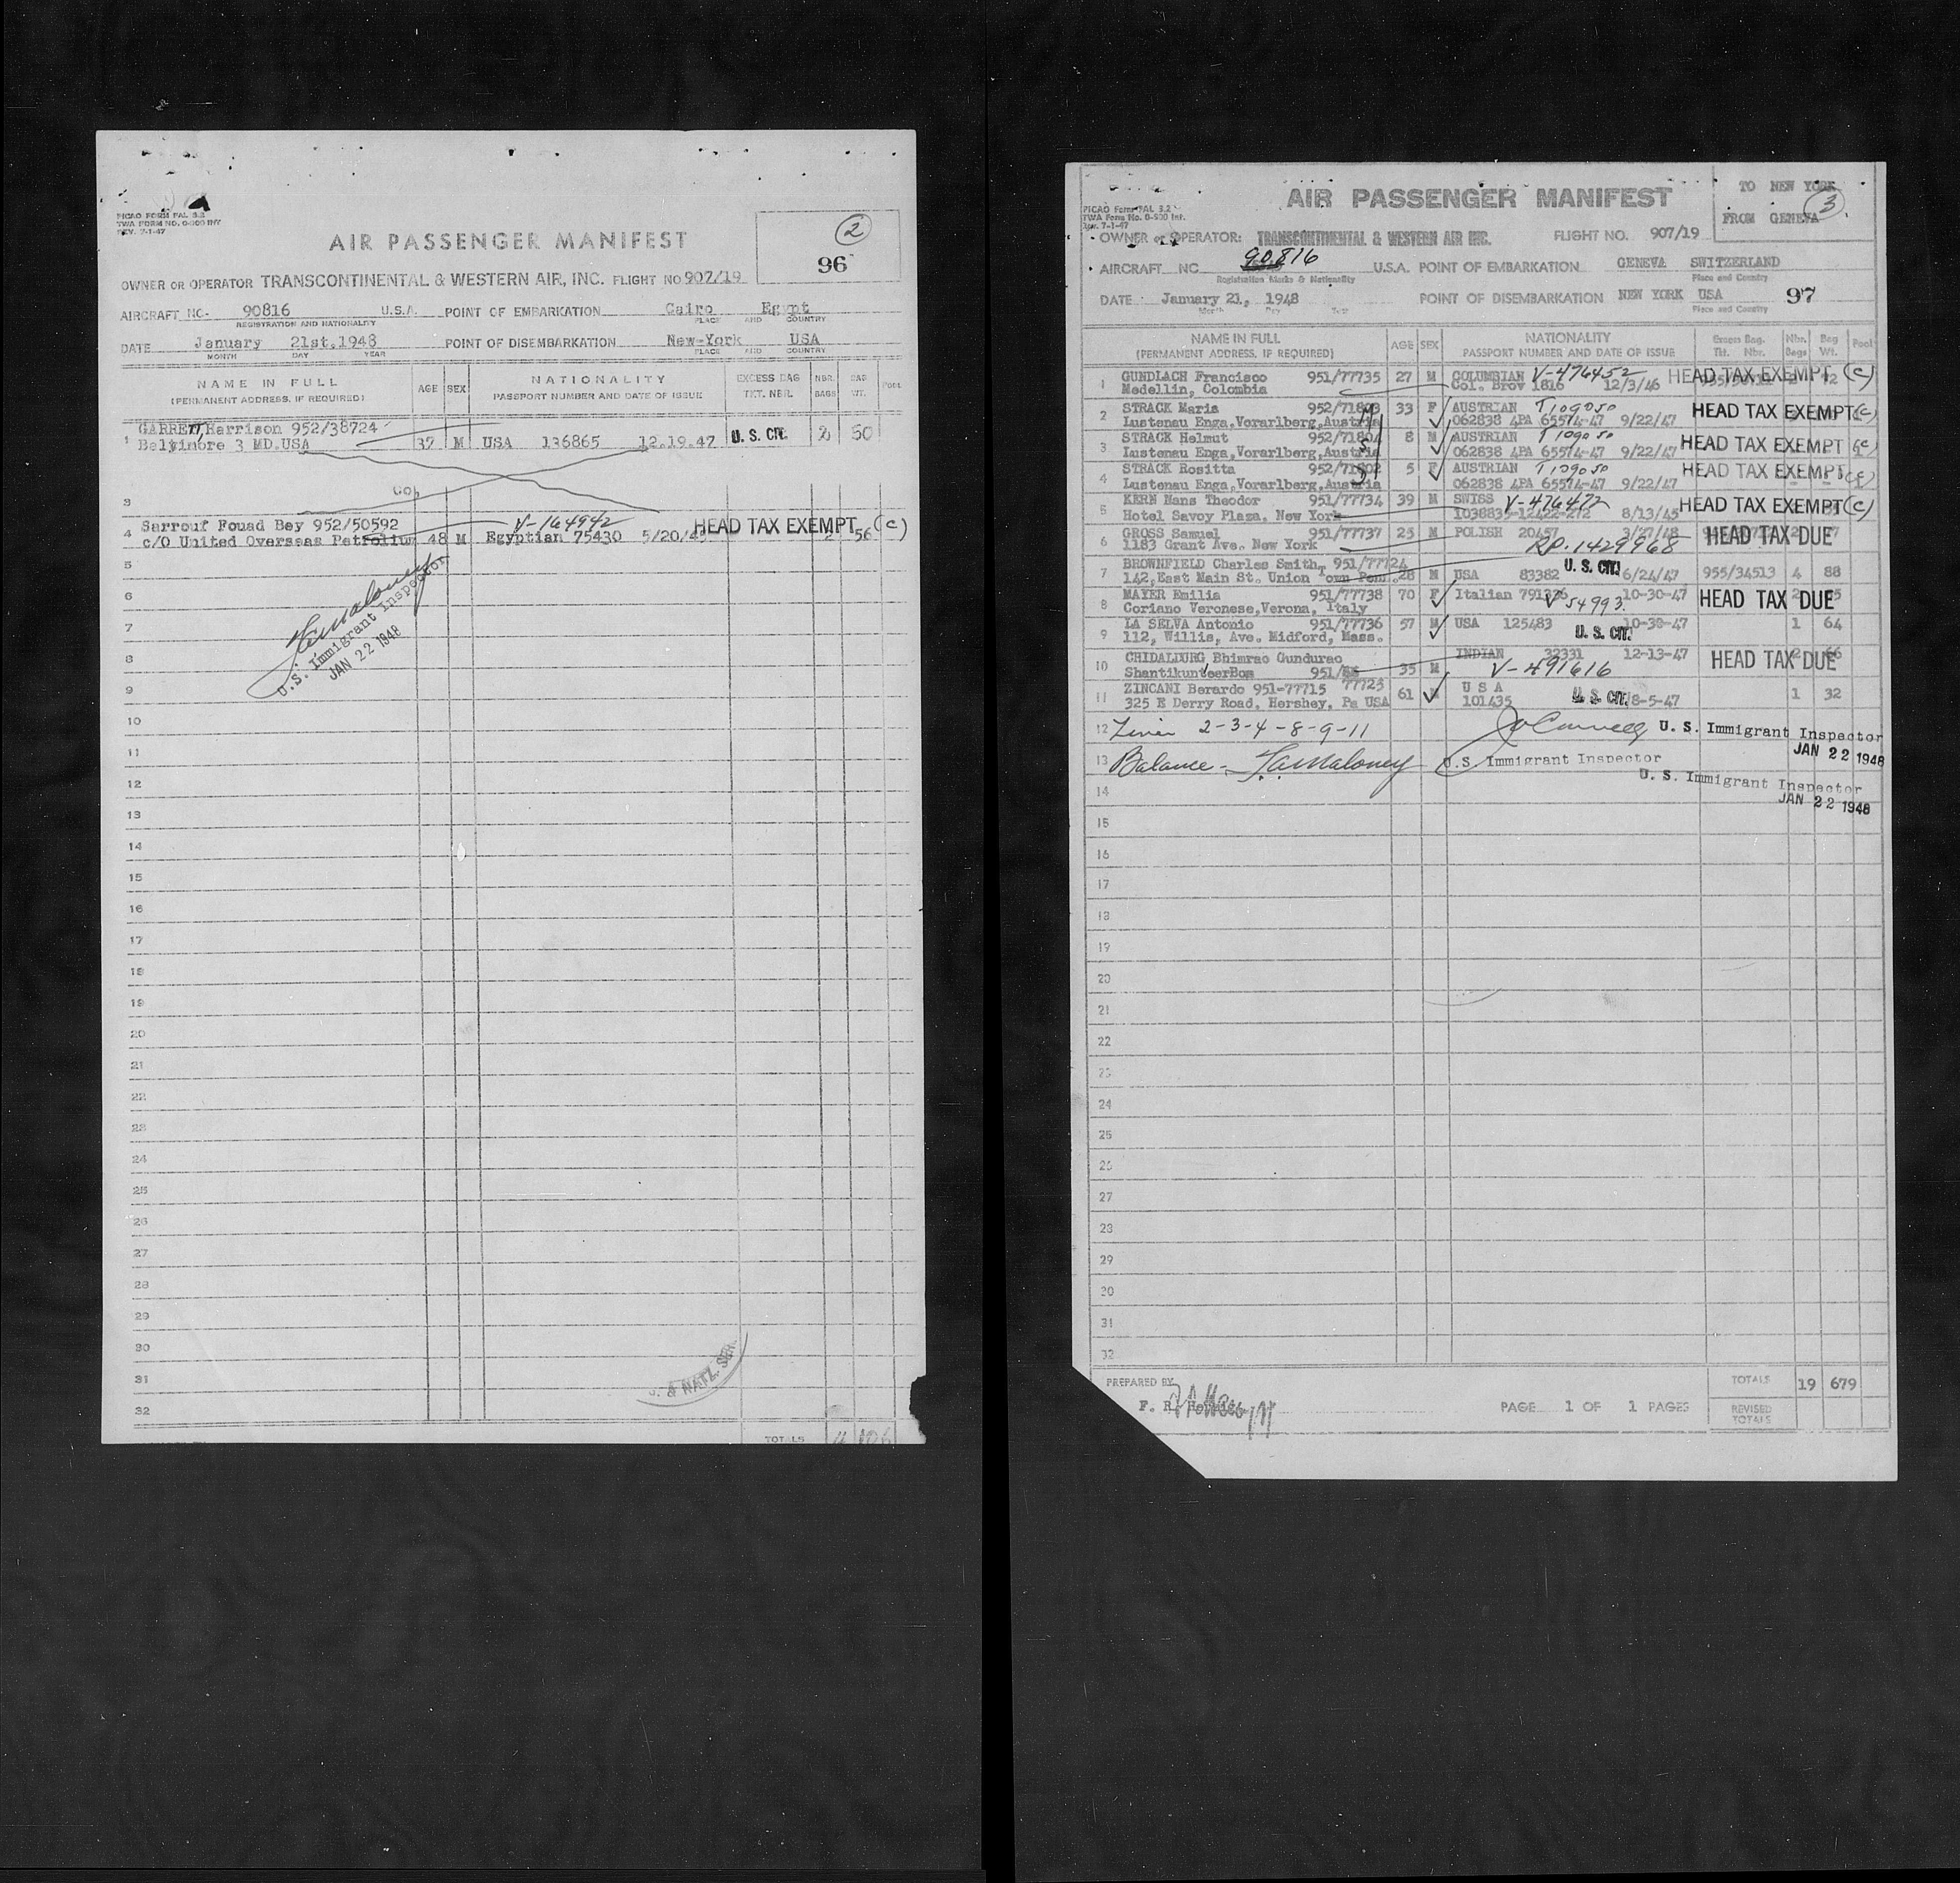 PICAO FORM FAL 3.2
TWA FORM NO. 0-900 INT
REV. 7-1-47
2
96
AIR PASSENGER MANIFEST
OWNER OR OPERATOR TRANSCONTINENTAL & WESTERN AIR, INC. FLIGHT NO 907/19
AIRCRAFT NO- 90816 U.S.A. POINT OF EMBARKATION Cairo Egypt
REGISTRATION AND NATIONALITY PLACE AND COUNTRY
DATE January 21st.1948 POINT OF DISEMBARKATION New-York USA
MONTH DAY YEAR PLACE AND COUNTRY
NAME IN FULL AGE SEX NATIONALITY EXCESS BAG NBR. BAG POOL
(PERMANENT ADDRESS, IF REQUIRED) PASSPORT NUMBER AND DATE OF ISSUE TKT. NBR. BAGS WT.
GARRETT, Harrison 952/38724
1 Baltimore 3 MD.USA 37 M USA 136865 12.19.47 U. S. CIT. 2 50
3 Co.
Sarrouf Fouad Bey 952/50592 V-164942 HEAD TAX EXEMPT (C)
4 c/O United Overseas Petrolium 48 M Egyptian 75430 5/20/4 2 56
5
6
7
8
U.S. Immigrant Inspector
JAN 22 1948
9
10
11
12
13
14
15
16
17
18
19
20
21
22
23
24
25
26
27
28
29
30
31
& NATZ. SER
32
TOTALS 4 106
PICAO Form FAL 3.2
TWA Form No. 0-900 Int.
Rev. 7-1-47
AIR PASSENGER MANIFEST
TO NEW YORK
FROM GENEVA
3
OWNER or OPERATOR: TRANSCONTINENTAL & WESTERN AIR INC. FLIGHT NO. 907/19
AIRCRAFT NC 90816 U.S.A. POINT OF EMBARKATION GENEVA SWITZERLAND
Registration Marks & Nationality Place and Country
DATE January 21, 1948 POINT OF DISEMBARKATION NEW YORK USA 97
Month Day Year Place and Country
NAME IN FULL AGE SEX NATIONALITY Excess Bag. Nbr. Bag Pool
(PERMANENT ADDRESS, IF REQUIRED) PASSPORT NUMBER AND DATE OF ISSUE Tkt. Nbr. Bags Wt.
1 GUNDLACH Francisco 951/77735 27 M COLUMBIAN V-476452 HEAD TAX EXEMPT (C)
Medellin, Colombia Col. Brov 1816 12/3/46
2 STRACK Maria 33 F AUSTRIAN T109050 HEAD TAX EXEMPT (C)
Lustenau Enga,Vorarlberg,Austria 062838 4PA 65574-47 9/22/47
3 STRACK Helmut 8 M AUSTRIAN T109050 HEAD TAX EXEMPT (C)
Lustenau Enga,Vorarlberg,Austria 062838 4PA 65574-47 9/22/47
4 STRACK Rositta 5 F AUSTRIAN T109050 HEAD TAX EXEMPT (C)
Lustenau Enga,Vorarlberg,Austria 062838 4PA 65574-47 9/22/47
5 KERN Hans Theodor 951/77734 39 M SWISS V-476472 HEAD TAX EXEMPT (C)
Hotel Savoy Plaza, New York 8/13/45
6 GROSS Samuel 951/77737 25 M POLISH 20457 3/27/48 HEAD TAX DUE
1183 Grant Ave. New York RP.1429968
7 BROWNFIELD Charles Smith, 951/77724 U. S. CIT.
142,East Main St. Union Town Penn. 28 M USA 83382 6/24/47 955/34513 4 88
8 MAYER Emilia 951/77738 70 F Italian 10-30-47 HEAD TAX DUE
Coriano Veronese,Verona, Italy V 54993.
9 LA SELVA Antonio 951/77736 57 M USA 125483 10-30-47 1 64
112, Willis, Ave. Midford, Mass. U. S. CIT.
10 CHIDALDURG Bhimrao Gundurao INDIAN 32331 12-13-47 HEAD TAX DUE
951/ 35 M V-491616
11 ZINCANI Berardo 951-77715 77723 61 M U S A 1 32
325 E Derry Road, Hershey, Pa USA 101435 U. S. CIT. 8-5-47
12 Lines 2-3-4-8-9-11 U. S. Immigrant Inspector
JAN 22 1948
13 Balance - F.A. Maloney U.S. Immigrant Inspector
U. S. Immigrant Inspector
14 JAN 22 1948
15
16
17
18
19
20
21
22
23
24
25
26
27
28
29
30
31
32
PREPARED BY TOTALS 19 679
F. R. PAGE 1 OF 1 PAGES REVISED TOTALS